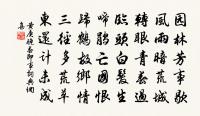 園林芳事歇
風雨暗荒城
轉眼青春過
臨頭白髮生
啼鵑亡國恨
歸鶴故鄉情
三徑多荒草
東還計未成
黄庚晚春即事詞典網
集